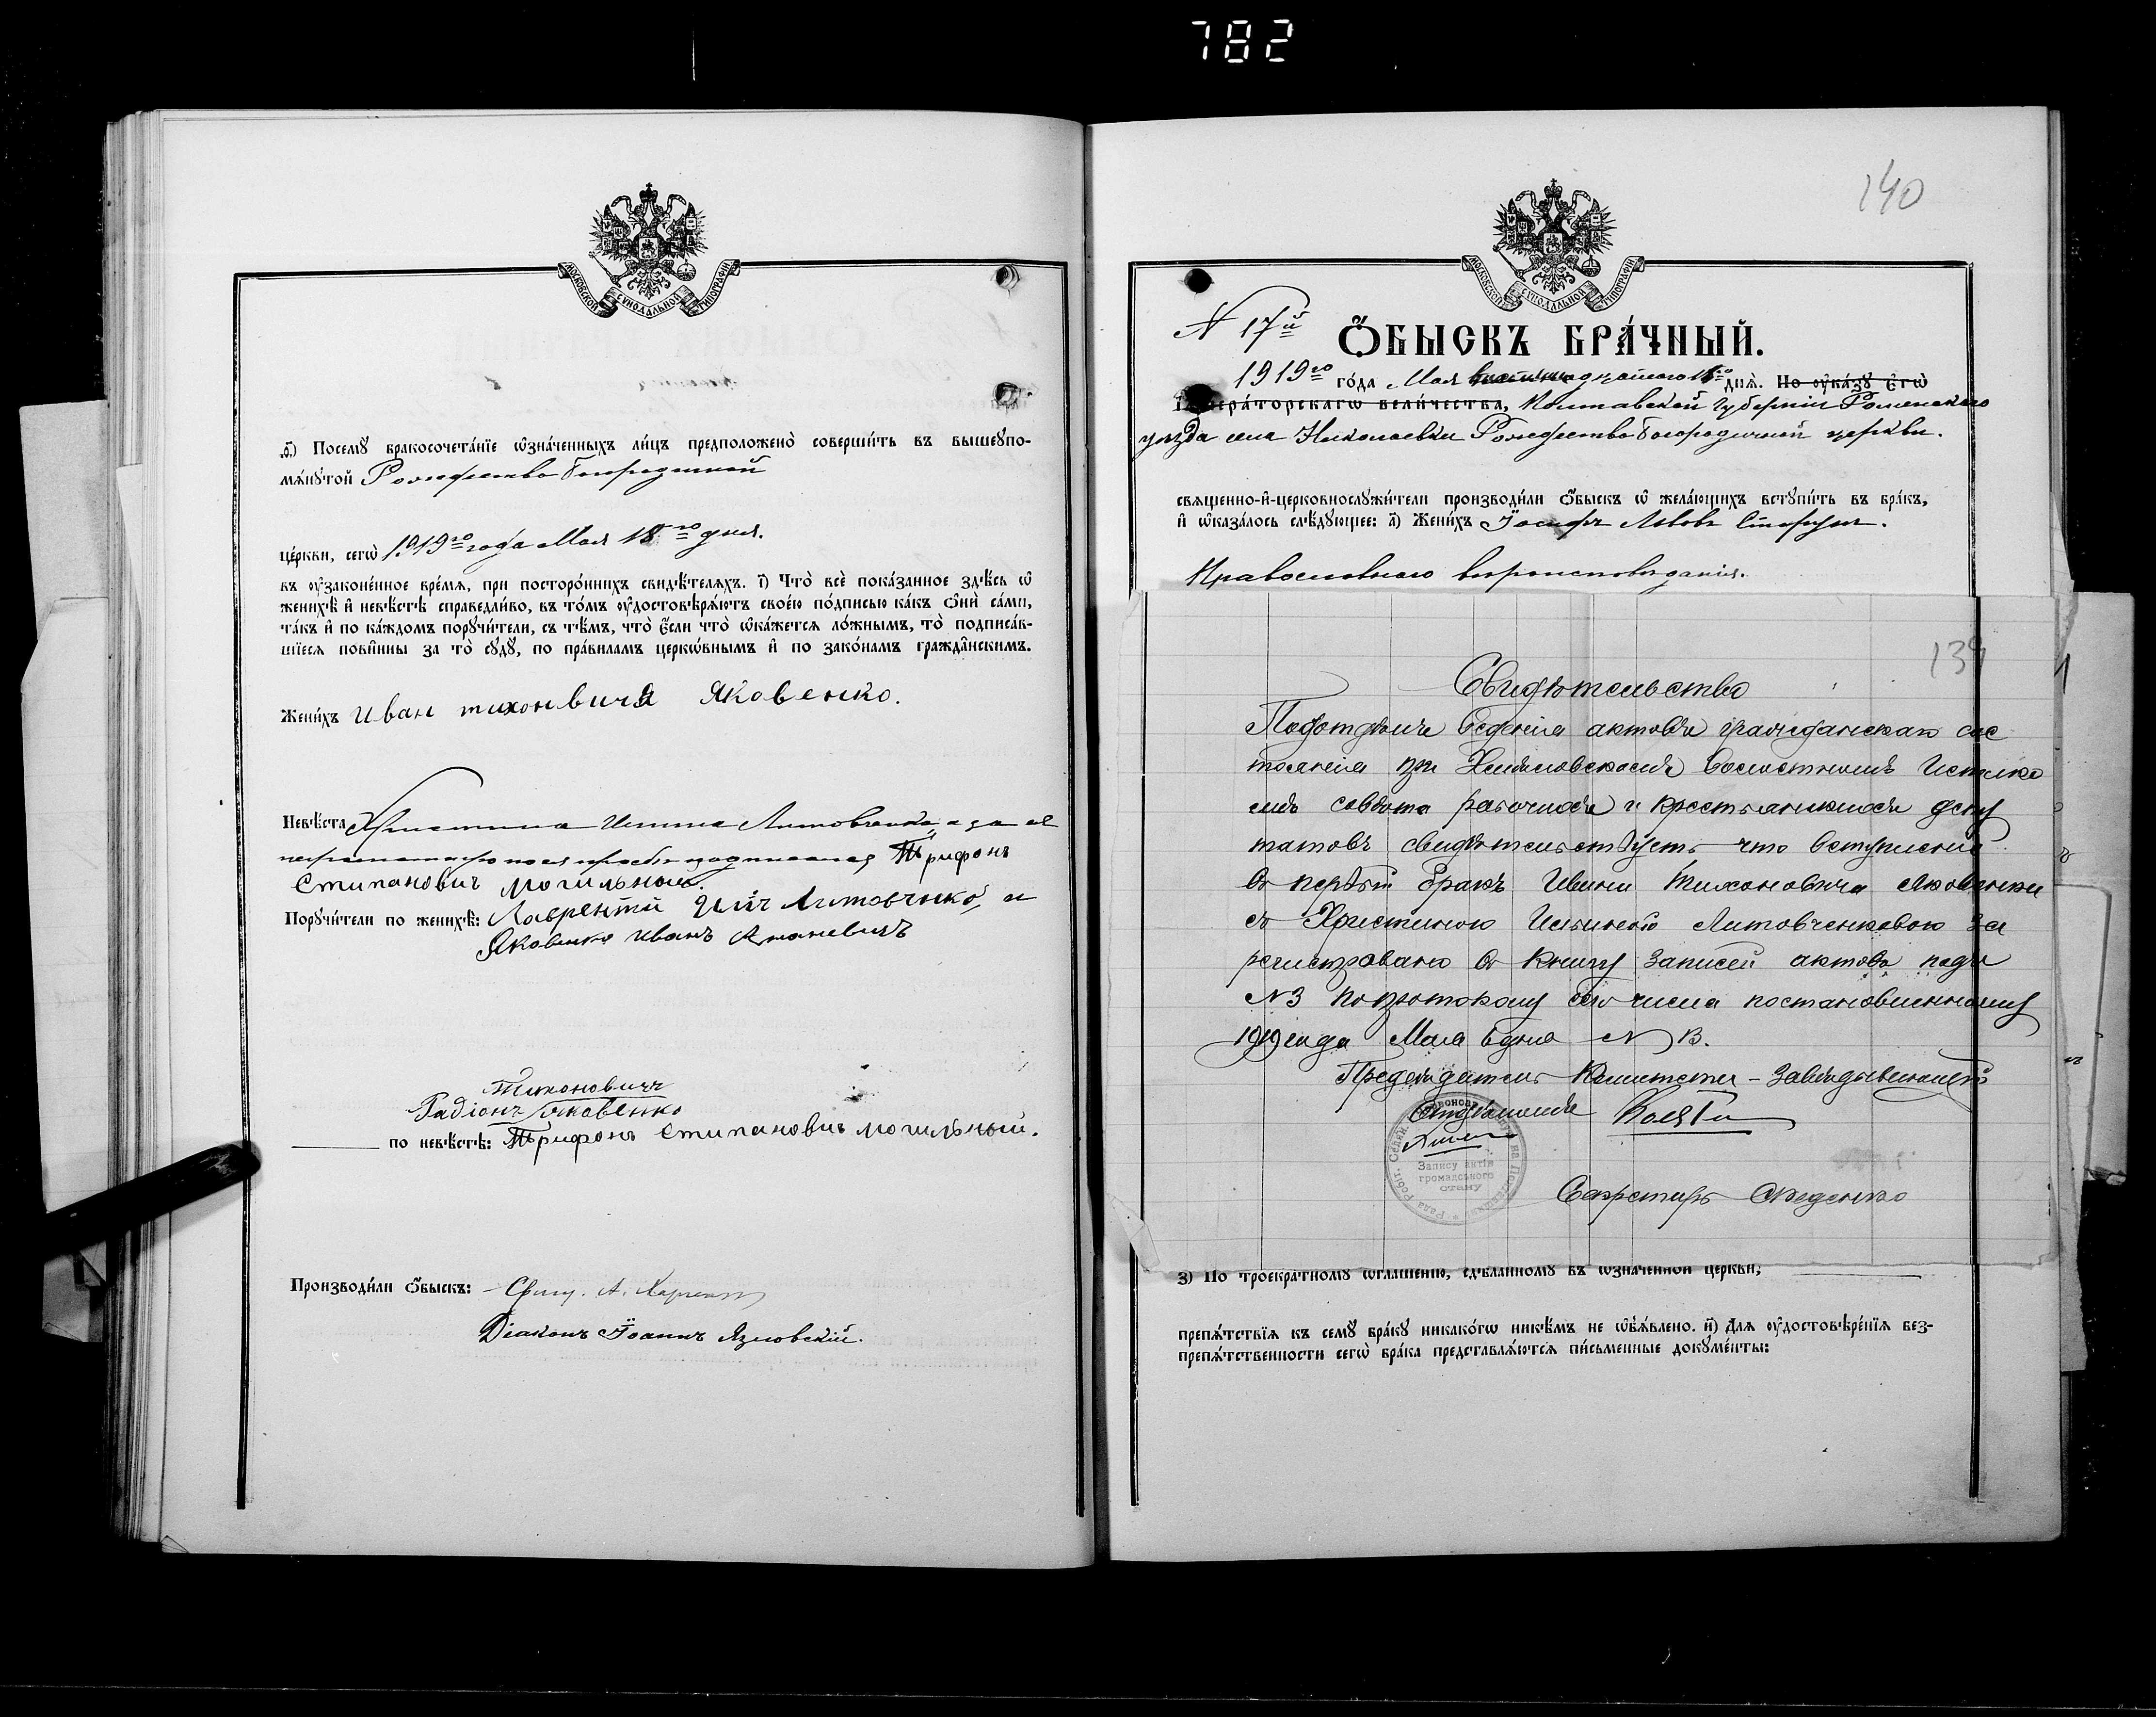 782
МОСКОВСКОЙ СѴНОДАЛЬНОЙ ТИПОГРАФІИ
ѳ҃) Посемꙋ̀ бракосочета́нїе ѡ҆зна́ченныхъ ли́цъ предположено̀ соверши́ть въ вышеꙋпо-
мѧ́нꙋтой Рождество Богородичной
це́ркви, сегѡ̀ 1919го года Мая 18го дня.
въ ᲂу҆зако́ненное вре́мѧ, при посторо́ннихъ свидѣ́телѧхъ. і҃) Что̀ всѐ пока́занное здѣ́сь ѡ҆
женихѣ̀ и҆ невѣ́стѣ справедли́во, въ то́мъ ᲂу҆достовѣрѧ́ютъ свое́ю по́дписью ка́къ ѻ҆нѝ са́ми,
та́къ и҆ по ка́ждомъ порꙋчи́тели, съ тѣ́мъ, что̀ є҆́сли что̀ ѡ҆ка́жетсѧ ло́жнымъ, то̀ подписа́в-
шїесѧ пови́нны за то̀ сꙋдꙋ̀, по пра́виламъ церкѡ́внымъ и҆ по зако́намъ гражда̑нскимъ.
Жени́хъ Иван тихонвичъ Яковенко.
Невѣ́ста Христина Ильина Литовченко, а за ея
неграмотною по ея просьбѣ подписался Трифонъ
Стипанович могильный.
Порꙋчи́тели по женихѣ̀: Лаврентiй Илiч Литовченко, и
Яковенко Иванъ Ананевичъ
Тихоновичъ
Радiонъ Яковенко
по невѣ́стѣ: Трифонъ Стипановиъ могильный.
Производи́ли ѻ҆́быскъ: Свящ. А.
Дiаконъ Іоаннъ Язловскій.
140
МОСКОВСКОЙ СѴНОДАЛЬНОЙ ТИПОГРАФІИ
N 17й
Ѻ҆́БЫСКЪ БРА́ЧНЫЙ.
1919го го́да Мая 18го днѧ̀. По ᲂу҆ка́зꙋ Є҆гѡ̀
И҆мпера́торскагѡ вели́чества, Полтавской губернiи Роменского
уѣзда села Николаевки Рождество Богородичной церкви.
свѧще́нно-и҆-церковнослꙋжи́тели производи́ли ѻ҆́быскъ ѡ҆ жела́ющихъ встꙋпи́ть въ бра́къ,
и҆ ѡ҆каза́лось слѣ́дꙋющее: а҃) Жени́хъ Iосифъ Львовъ
Православного вѣроисповѣданiя.
139
Свидѣтельство
Подотдѣлъ веденiя актовъ гражданскаго сос
тоянiя при Хмѣловскомъ Волостномъ Исполко
мѣ совѣта рабочихъ и крестьянскихъ депу
татовъ свидѣтельствуетъ что вступленiе
въ первый бракъ Ивана Тихоновича Яковенки
съ Христиною Ильиною Литовченковою за
регистровано въ книгу записей актовъ подъ
N3 по протоколу сего числа постановленному
1919 года Мая 6 дня N В.
Предсѣдатель – Завѣдывающiй
Отдѣломъ
Запису актів
громадського
стану
Секретарь
з҃) По троекра́тномꙋ ѡ҆глаше́нїю, сдѣ́ланномꙋ въ ѡ҆зна́ченной це́ркви,
препѧ́тствїѧ къ семꙋ̀ бра́кꙋ никако́гѡ никѣ́мъ не ѡ҆б̾ѧ́влено. и҃) Длѧ ᲂу҆достовѣре́нїѧ без-
препѧ́тственности сегѡ̀ бра́ка представлѧ́ютсѧ пи́сьменные докꙋме́нты: